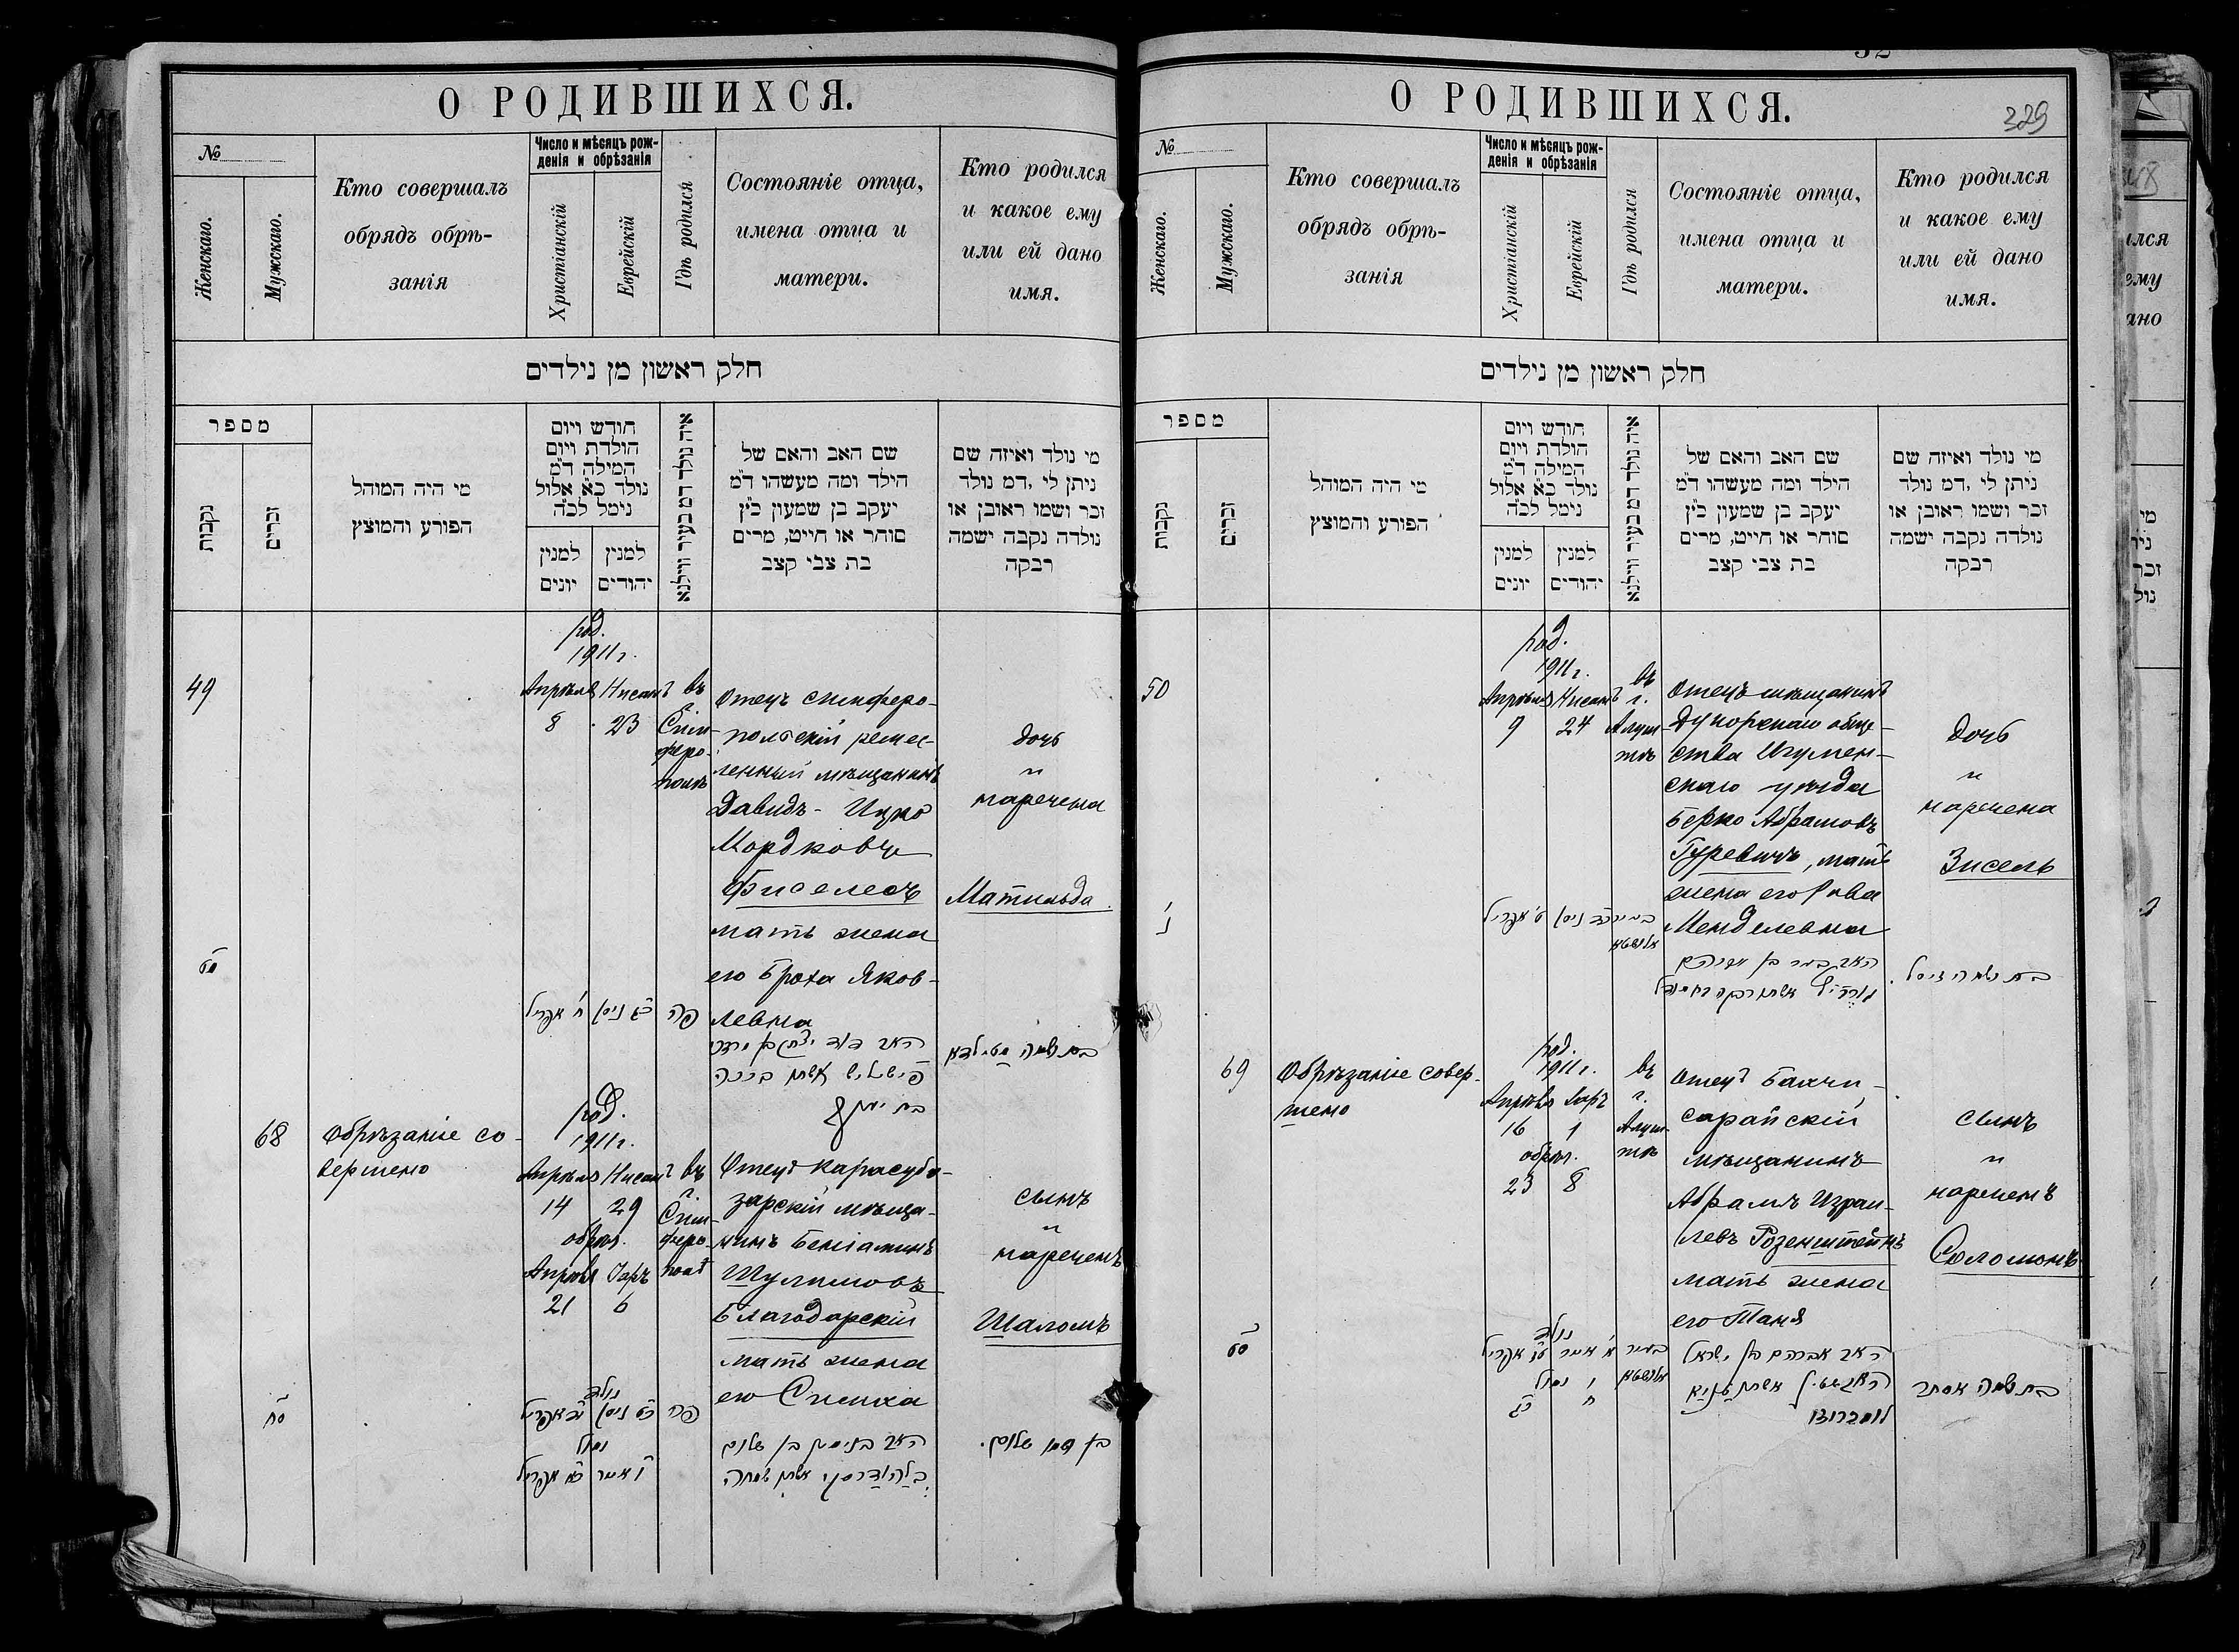 О РОДИВШИХСЯ.
№
Женскаго.
Мужскаго.
Кто совершалъ
обрядъ обрѣ-
занія
Число и мѣсяцъ рож-
денія и обрѣзанія
Христіанскій
Еврейскій
Гдѣ родился
Состояніе отца,
имена отца и
матери.
Кто родился
и какое ему
или ей дано
имя.
חלק ראשון מן נילדים
מספר
נקבות
זכרים
מי היה המוהל
הפורע והמוצץ
חודש ויום
הולדת ויום
המילה ד״מ
נולד כ״א אלול
נימל לכ״ה
למנין
יונים
למנין
יהודים
איה נולד דמ בעיר ווילנא
שם האב והאם של
הילד ומה מעשהו ד״מ
יעקב בן שמעון כ״ץ
סוחר או חייט, מרים
בת צבי קצב
מי נולד ואיזה שם
ניתן לי, דמ נולד
זכר ושמו ראובן או
נולדה נקבה ישמה
רבקה
49
род.
1911 г.
Апрѣля Нисанъ
8 23
въ
г.
Сим-
феро-
полѣ
Отецъ симферо-
польскій ремес-
ленный мѣщанинъ
Давидъ-Ицко
Мордковъ
Фиселесъ
мать жена
его Броха Яков-
левна
дочь
и
наречена
Матильда
כג ניסן ח אפריל
פה
בת שמה מטילדא
68
Обрѣзаніе со-
вершено
род.
1911 г.
Апрѣля Нисанъ
14 29
обрѣз.
Апрѣля Іаръ
21 6
въ
г.
Сим-
феро-
полѣ
Отецъ Карасуба-
зарскій мѣща-
нинъ Беніаминъ
Шулимовъ
Благодарскій
мать жена
его Симха
сынъ
и
нареченъ
Шаломъ
סח
נולד
כט ניסן יד אפריל
נמול
ו אייר כא אפריל
פה
האב בנימין בן שלום
אשתו שמחה
בן שמו שלום.
О РОДИВШИХСЯ.
329
№
Женскаго.
Мужскаго.
Кто совершалъ
обрядъ обрѣ-
занія
Число и мѣсяцъ рож-
денія и обрѣзанія
Христіанскій
Еврейскій
Гдѣ родился
Состояніе отца,
имена отца и
матери.
Кто родился
и какое ему
или ей дано
имя.
חלק ראשון מן נילדים
מספר
נקבות
זכרים
מי היה המוהל
הפורע והמוצץ
חודש ויום
הולדת ויום
המילה ד״מ
נולד כ״א אלול
נימל לכ״ה
למנין
יונים
למנין
יהודים
איה נולד דמ בעיר ווילנא
שם האב והאם של
הילד ומה מעשהו ד״מ
יעקב בן שמעון כ״ץ
סוחר או חייט, מרים
בת צבי קצב
מי נולד ואיזה שם
ניתן לי, דמ נולד
זכר ושמו ראובן או
נולדה נקבה ישמה
רבקה
50
род.
1911 г.
Апрѣля Нисанъ
9 24
въ
г.
Алуш-
тѣ
Отецъ мѣщанинъ
Дукорскаго обще-
ства Игумен-
скаго уѣзда
Берко Абрамовъ
Гуревичъ, мать
жена его Рива
Менделевна
дочь
и
наречена
Зисель
נ
כד ניסן ט אפריל
בעיר
אלושטא
בת שמה זיסל
69
Обрѣзаніе совер-
шено
род.
1911 г.
Апрѣль Іаръ
16 1
обрѣз.
23 8
въ
г.
Алуш-
тѣ
Отецъ Бахчи-
сарайскій
мѣщанинъ
Абрамъ Израи-
левъ Розенштейнъ
мать жена
его Таня
сынъ
и
нареченъ
Соломонъ
סט
נולד
א אייר טז אפריל
נמול
ח כג
בעיר
אלושטא
האב אברהם בן ישראל